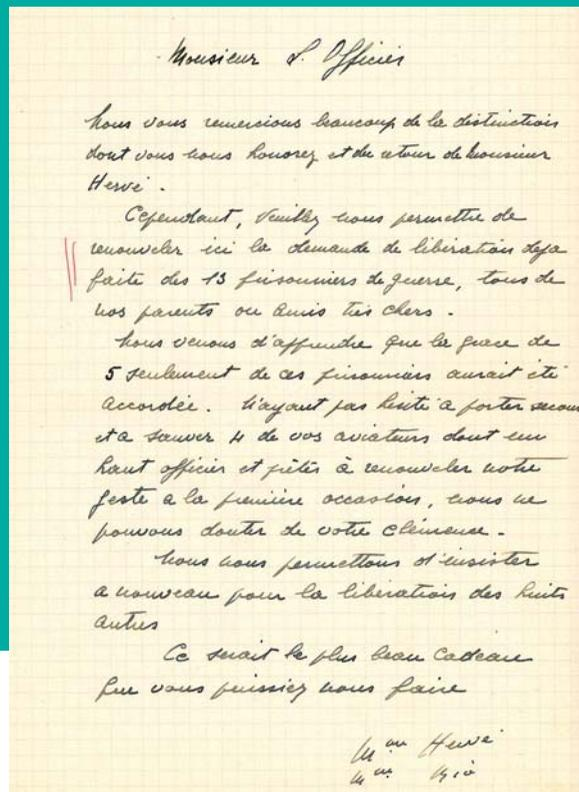 Monsieur L. Officier
Nous vous remercions beaucoup de la distinction
dont vous nous honorez et du retour de Monsieur
Hervé.
Cependant, veuillez nous permettre de
renouveler ici la demande de libération deja
faite des 13 prisonniers de guerre, tous de
nos parents ou amis très chers.
Nous venons d'apprendre que la grace de
5 seulement de ces prisonniers aurait été
accordée. N'ayant pas hésité a porter secour
et a sauver 4 de vos aviateurs dont un
haut officier et prêts à renouveler notre
geste a la première occasion, nous ne
pouvons douter de votre clémence.
Nous nous permettons d'insister
a nouveau pour la libération des huits
autres
Ce serait le plus beau cadeau
que vous puissiez nous faire
Hervé